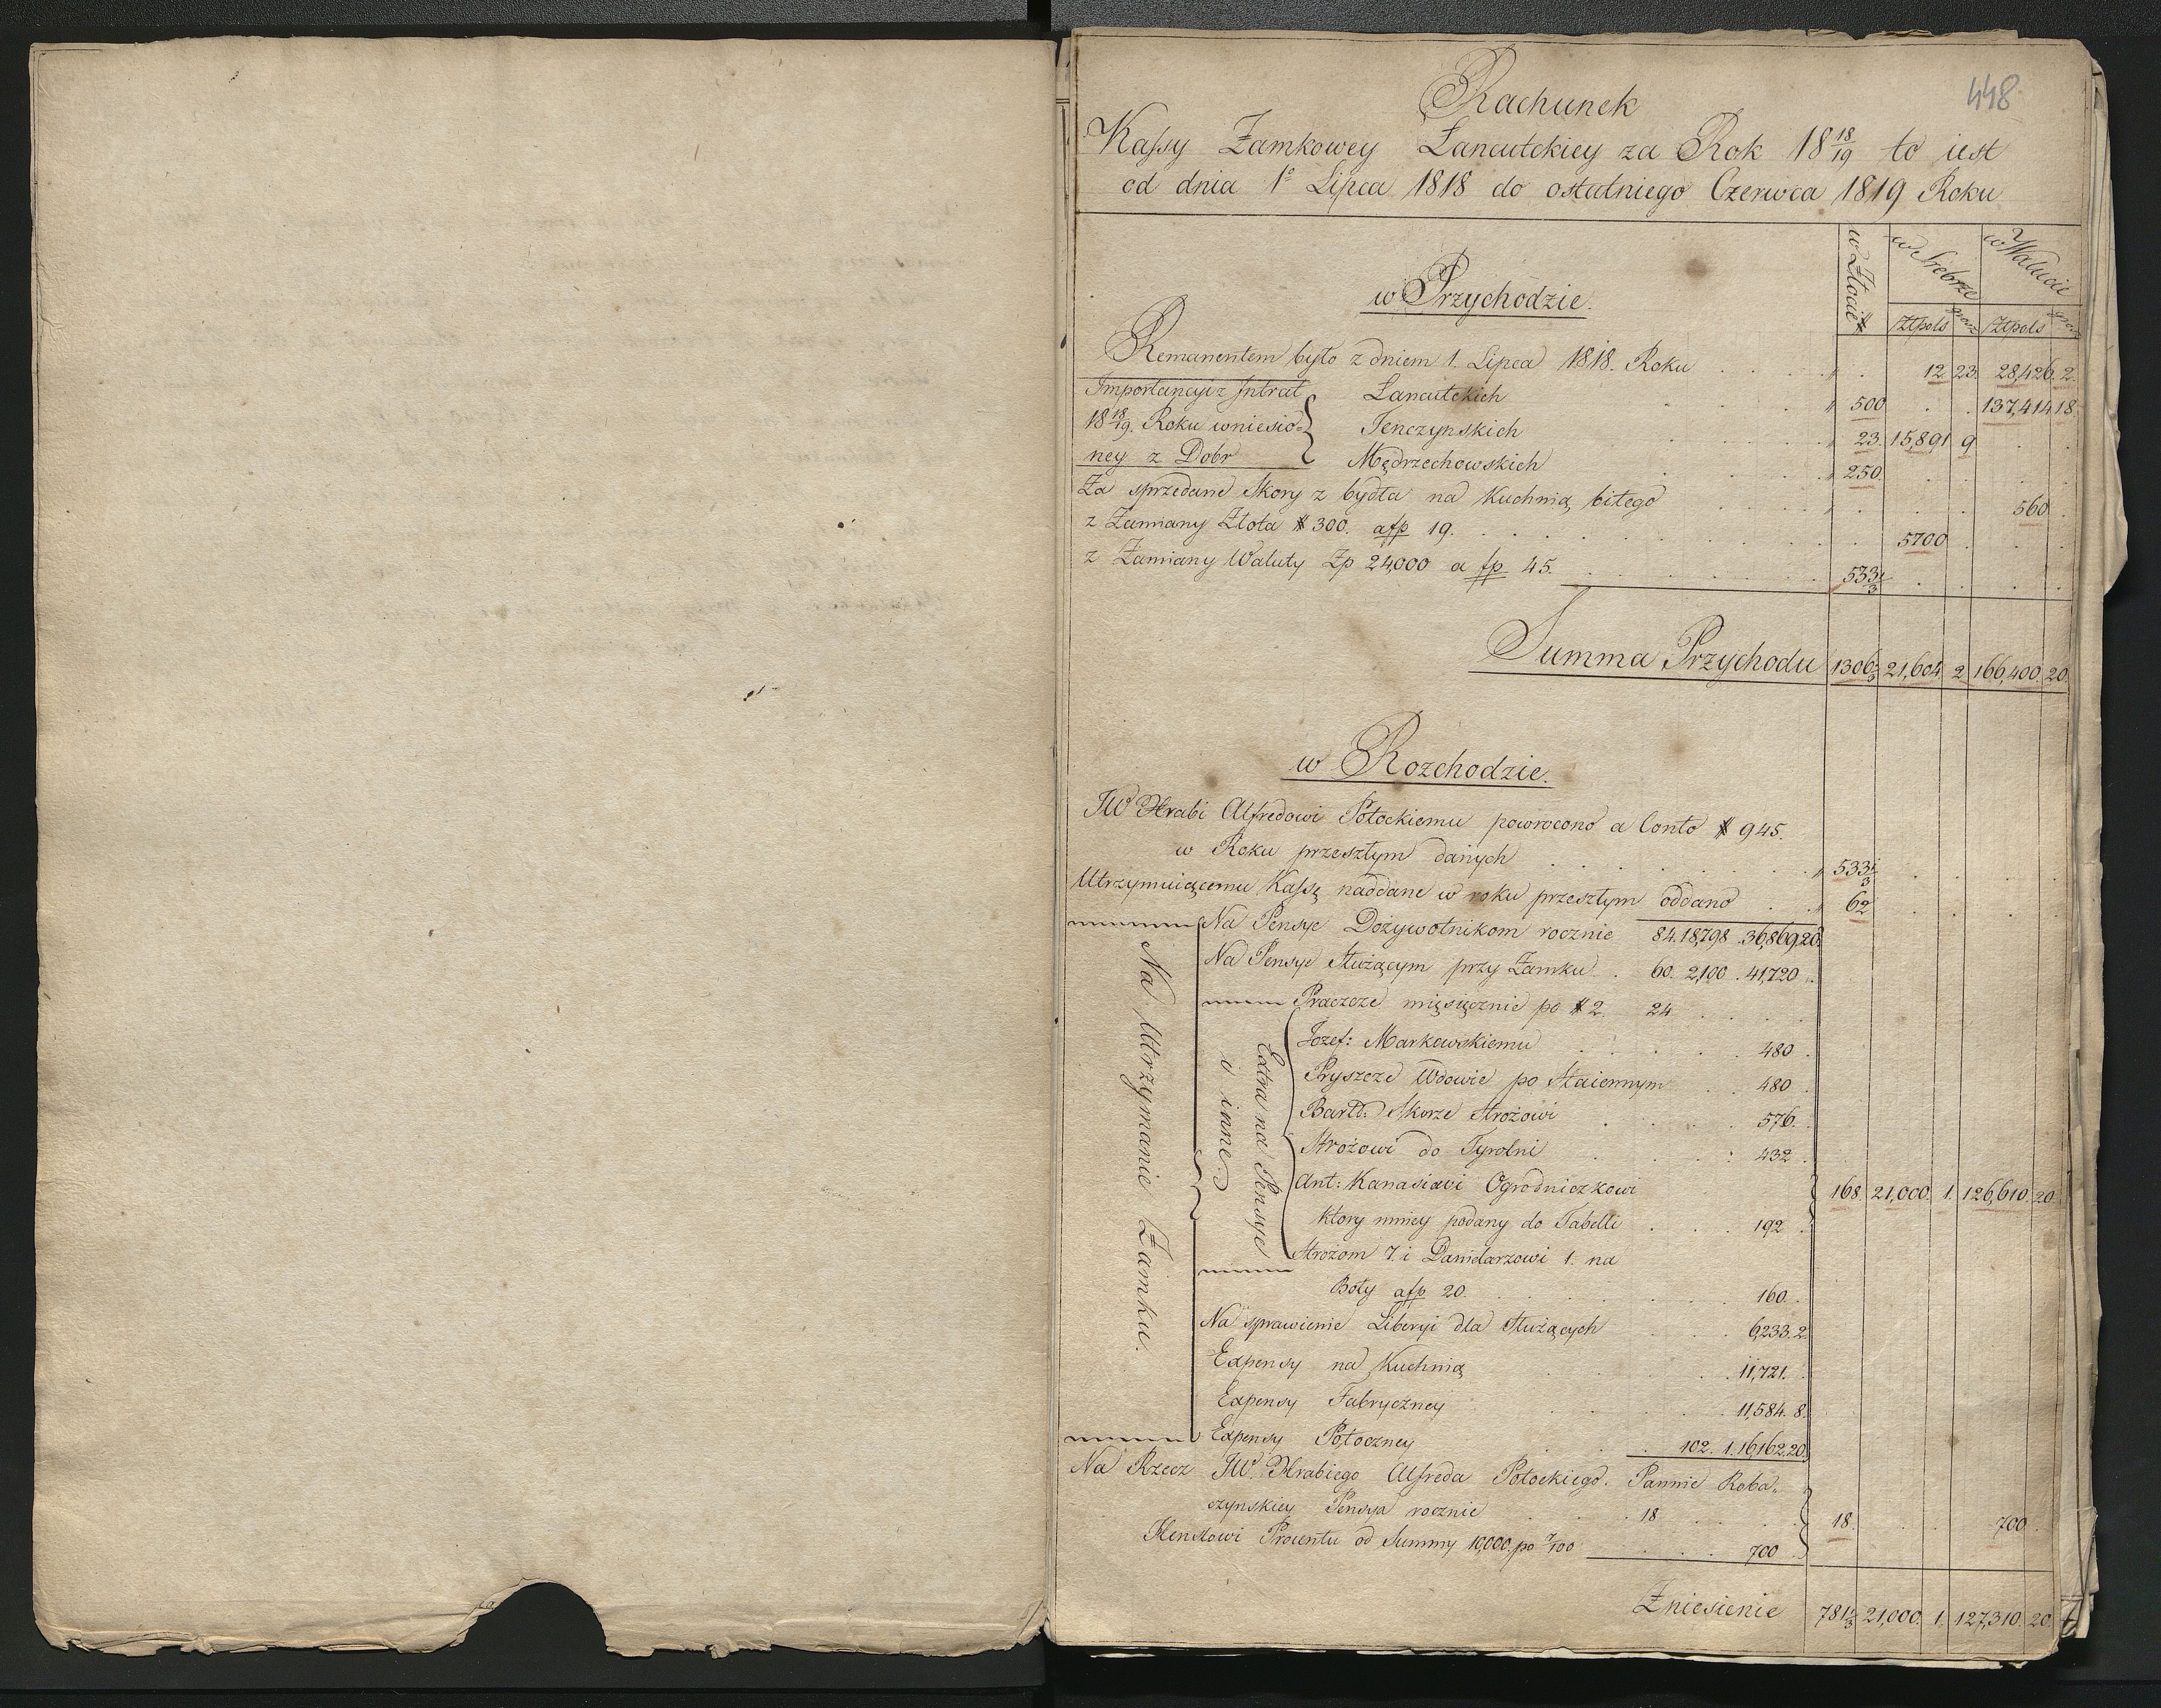 448
Rachunek
Kassy Zamkowey Łancutckiey za Rok 18 18/19 to iest
od dnia 1º Lipca 1818 do ostatniego Czerwca 1819 Roku
w Złocie # w Srebrze w Walucie
Ztpols grosz Ztpols grosz
w Przychodzie.
Remanentem było z dniem 1. Lipca 1818. Roku 12 23. 28,426. 2.
Importancyi z Intrat Łancutckich 500 137,414 18.
18 18/19. Roku wniesio= Tenczynskich 23. 15,891 9
ney z Dobr Mędrzechowskich 250.
Za sprzedane Skory z bydła na Kuchnią bitego 560
z Zamiany Złota # 300. a fp 19. 5700
z Zamiany Waluty Zp 24,000 a fp 45. 533 1/3
Summa Przychodu 1306 1/3 21,604 2 166,400. 20.
w Rozchodzie.
JW Hrabi Alfredowi Potockiemu powrocono a Conto # 945.
w Roku przeszłym danych 533 1/3
Utrzymuiącemu Kassę naddane w roku przeszłym oddano 62
Na Utrzymanie Zamku.
Na Pensye Dożywotnikom rocznie 84. 18,798 . 36,869 20.
Na Pensye Służącym przy Zamku 60. 2,100 . 41,720
Extra na Pensye
i inne
Praczce mięsięcznie po # 2. 24
Jozef: Markowskiemu 480
Pryszcze Wdowie po Staiennym 480
Bartł: Skorze Strożowi 576.
Strożowi do Tyrolni 432
Ant: Kanasiowi Ogrodniczkowi 168. 21,000. 1. 126,610. 20.
ktory mniey podany do Tabelli 192
Strożom 7. i Damdarzowi 1. na
Boty a fp 20. 160.
Na sprawienie Liberyi dla Służących 6,233. 2
Expensy na Kuchnią 11,721.
Expensy Fabryczney 11,584. 8.
Expensy Potoczney 102. 1. 16,162. 20.
Na Rzecz JW. Hrabiego Alfreda Potockiego. Pannie Roba=
czynskiey Pensya rocznie 18 18. 700
Henslowi Procentu od Summy 10,000. po 7/100 700
Zniesienie 781 1/3 21,000. 1. 127,310. 20.